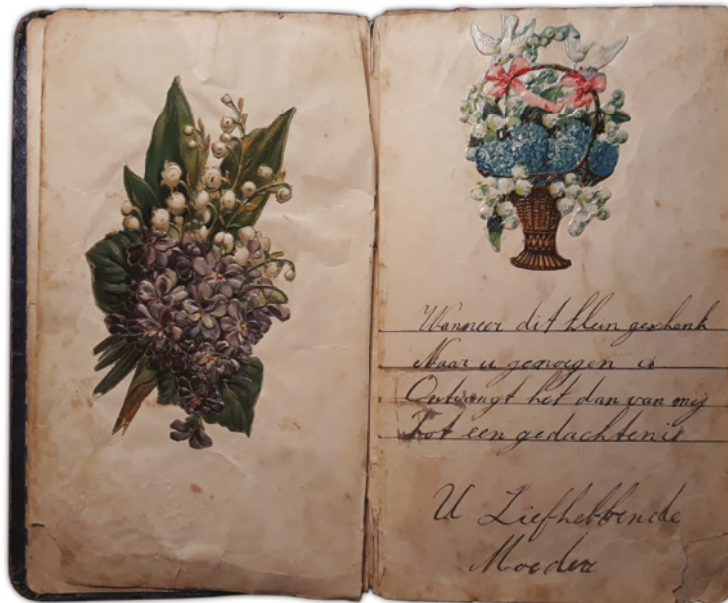 Wanneer dit klein geschenk
Naar u genoegen is
Ontvangt het dan van mij
Tot een gedachtenis
U Liefhebbende
Moeder